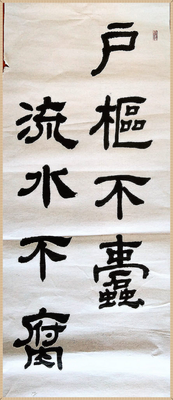 戶樞不蠹
流水不腐